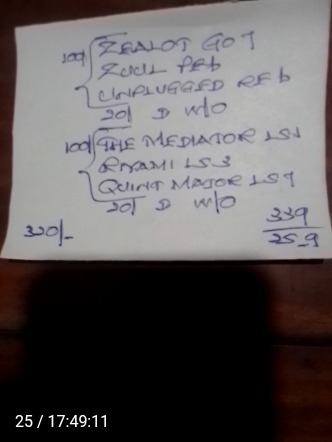 100/ ZEALOT GO 7
ZUUL Peb
UNPLUGGED RE b
20/ D W/O
100/ THE MEDIATOR LS1
RYAMI LS3
QUINT MAJOR LS9
20/ D W/O
320/-
339
25-9
25 / 17:49:11